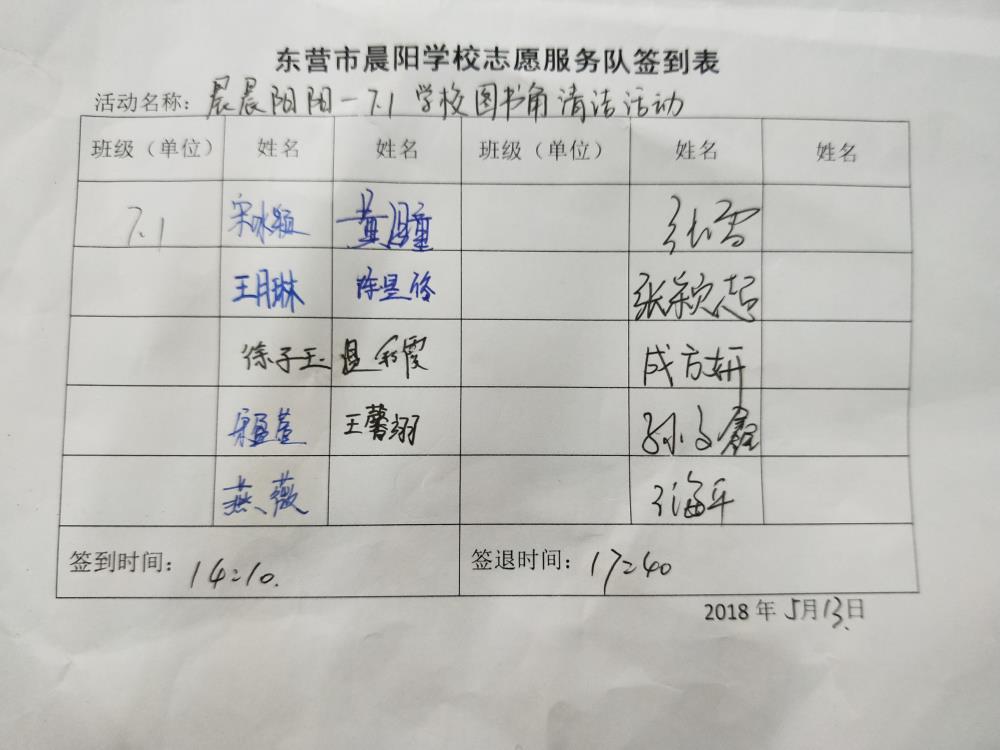 东营市晨阳学校志愿服务队签到表
活动名称：晨晨阳阳-7.1 学校图书角清洁活动
班级（单位） 姓名 姓名 班级（单位） 姓名 姓名
7.1 宋冰颖 黄瞳 张雪
王月琳 陈昱裕 张颖超
徐子玉 彩霞 成方妍
王馨翊 孙文鑫
燕薇 海平
签到时间：14:10. 签退时间：17:40
2018年5月13日